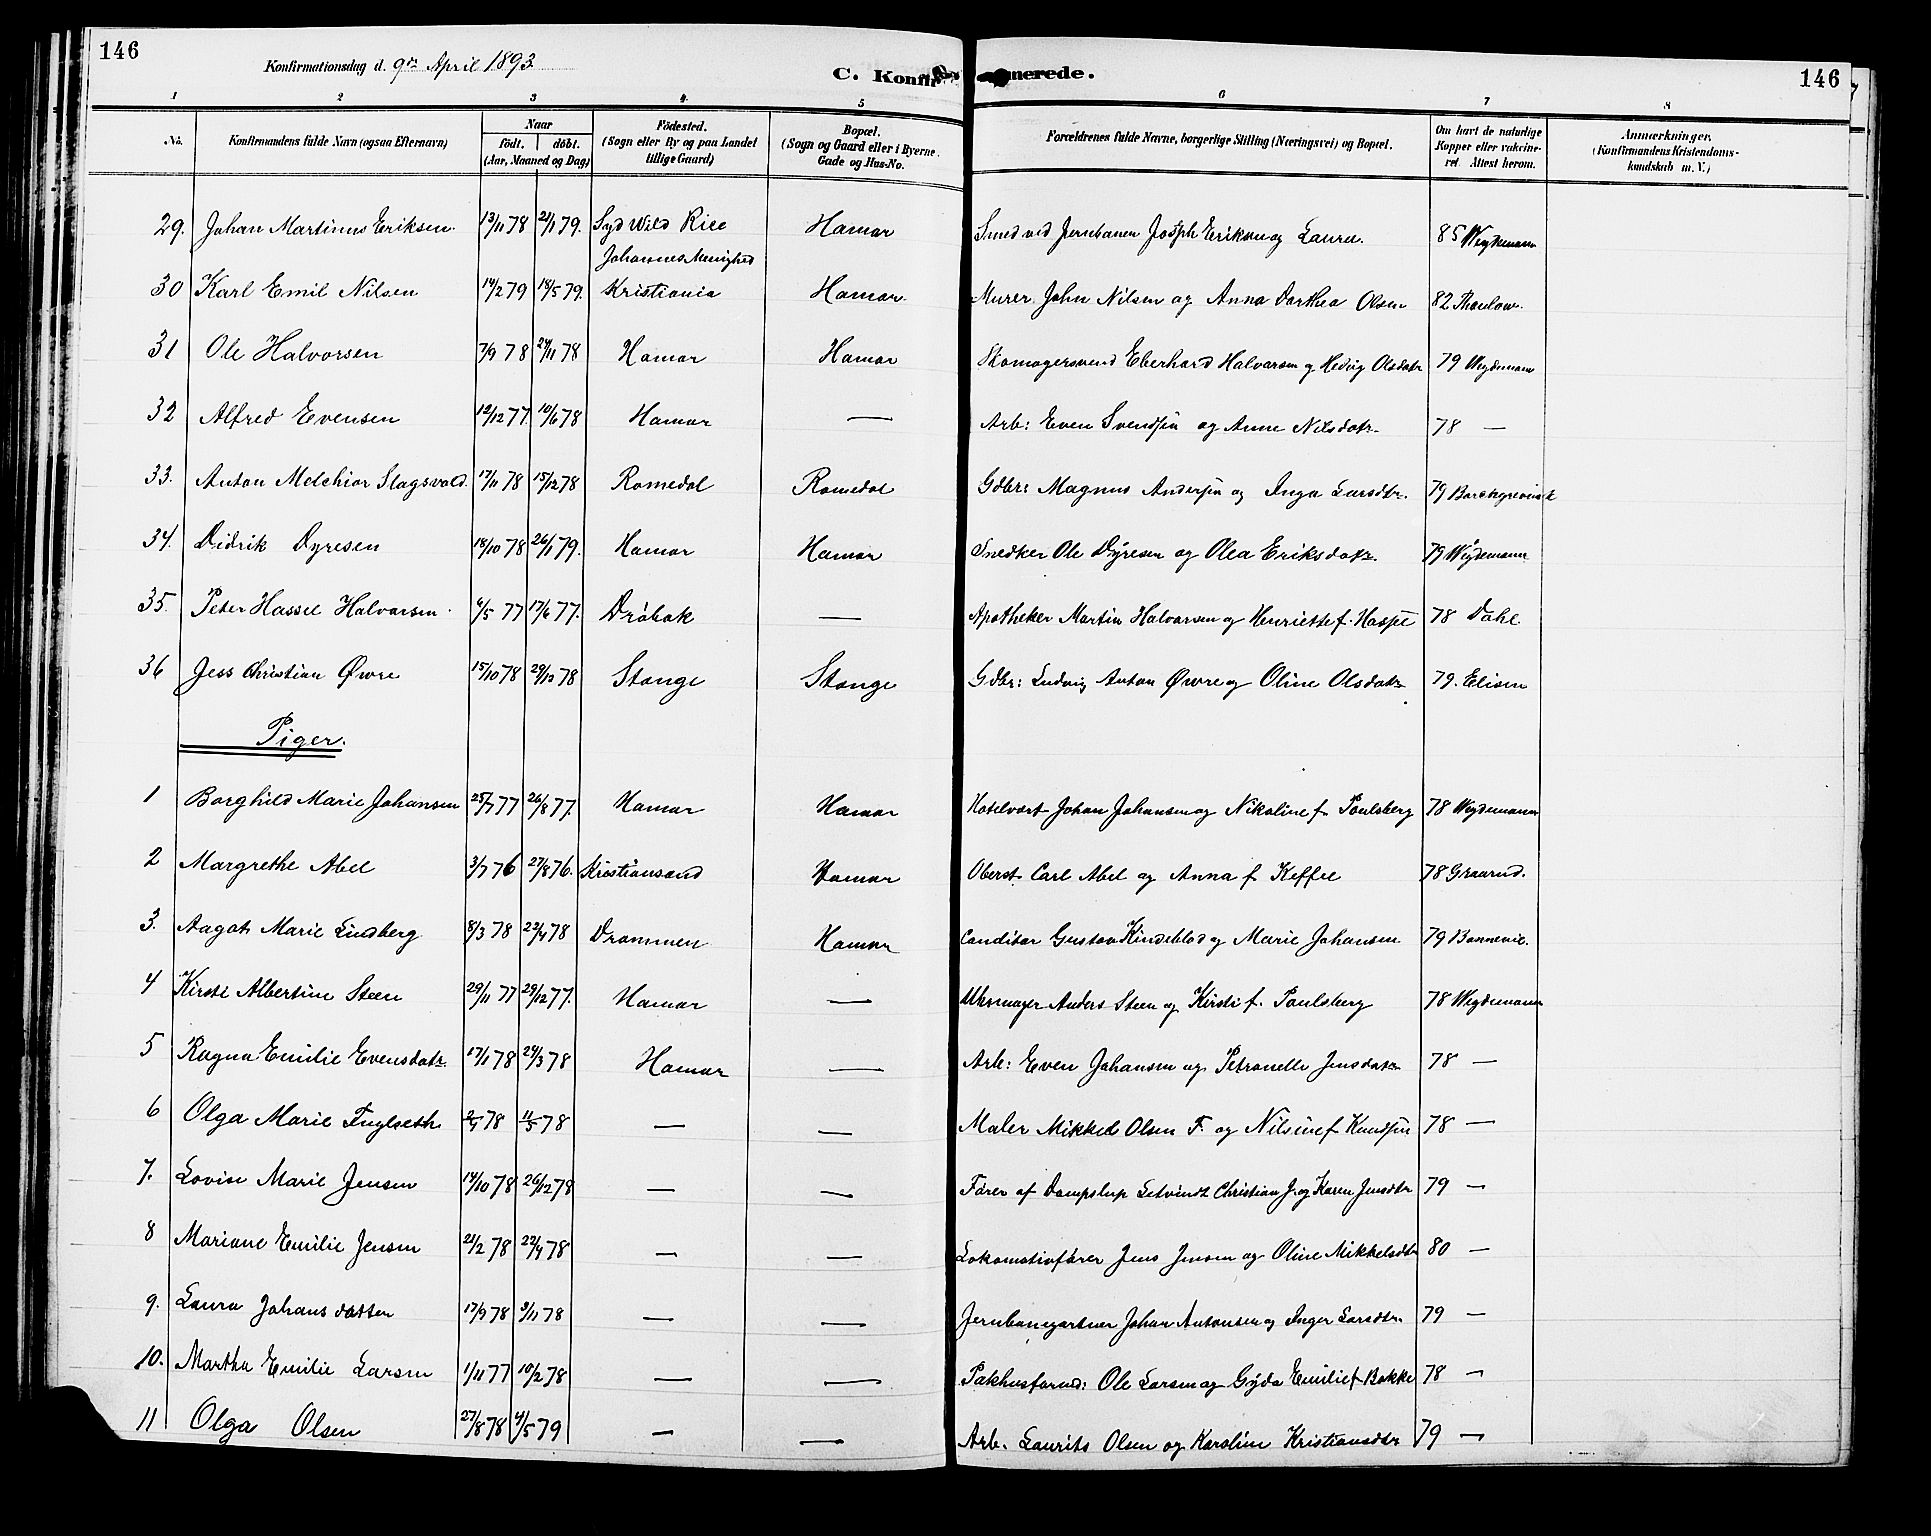 146
Konfirmationsdag d. 9de April 1893
C. Konfirmerede.
146
1 2 3 4 5 6 7 8
No. Konfirmandens fulde Navn (ogsaa Efternavn) Naar født. døbt. (Aar, Maaned og Dag) Fødested. (Sogn eller By og paa Landet tillige Gaard) Bopæl. (Sogn og Gaard eller i Byerne Gade og Hus-No. Forældrenes fulde Navne, borgerlige Stilling (Næringsvei) og Bopæl. Om havt de naturlige Kopper eller vakcineret. Attest herom. Anmærkninger. (Konfirmandens Kristendomskundskab m. V.)
29. Johan Martinus Eriksen 13/11 78 21/1 79. Syd Wild Rice Johannes Menighed Hamar Smed ved Jernbanen Joseph Eriksen og Laura. 85 Wegdemann
30 Karl Emil Nilsen 14/2 79 18/5 79. Kristiania Hamar. Murer John Nilsen og Anna Dorthea Olsen 82 Thaulow.
31 Ole Halvorsen 7/9 78 24/11 78 Hamar Hamar Skomagersvend Eberhard Halvorsen og Hedvig Olsdatr 79 Wegdemann
32 Alfred Evensen 12/12 77. 10/6 78 Hamar — Arb: Even Svendsen og Anne Nilsdatr. 78 —
33. Anton Melchior Slagsvold. 17/11 78 15/12 78 Romedal Romedal Gdbr: Magnus Andersen og Inga Larsdtr. 79 Borchgrevink
34. Didrik Dyresen 18/10 78 26/1 79. Hamar Hamar Snedker Ole Dyresen og Olea Eriksdatr. 79 Wegdemann
35. Peter Hassel Halvorsen 6/5 77 17/6 77. Drøbak — Apotheker Martin Halvorsen og Henriette f. 78 Dahl
36 Jess Christian Øvre 15/10 78 29/12 78 Stange Stange Gdbr: Ludvig Anton Øvre og Oline Olsdatr 79. Ellsen
Piger.
1 Borghild Marie Johansen 25/7 77 26/8 77. Hamar Hamar Hotelvært Johan Johansen og Nikoline f. Poulsberg 78 Wegdemann
2 Margrethe Abel 3/7 76 27/8 76. Kristiansand Hamar Oberst Carl Abel og Anna f. 78 Graarud.
3. Aagot Marie Lindberg 8/3 78 22/4 78 Drammen Hamar Conditor Gustav og Marie Johansen 79 Bonnevie.
4 Kirsti Albertine Steen 29/11 77 29/12 77. Hamar — Uhrmager Anders Steen og Kirsti f. Poulsberg 78 Wegdemann
5 Ragna Emilie Evensdatr. 17/1 78 24/3 78 Hamar — Arb: Even Johansen og Petronelle Jensdatr 78 —
6 Olga Marie Fuglseth. 2/4 78 11/5 78 — — Maler Mikkel Olsen F. og Nilsine f Knudsen 78 —
7. Lovise Marie Jensen 14/10 78 26/12 78 — — Fører af Christian J. og Karen Jensdtr 79 —
8 Mariane Emilie Jensen 21/2 78 22/4 78 — — Lokomotivfører Jens Jensen og Oline Mikkelsdtr 80 —
9. Laura Johansdatter 17/9 78 3/11 78 — — Jernbanegartner Johan Antonsen og Inger Larsdtr. 79 —
10. Martha Emilie Larsen 1/11 77 10/2 78 — — Pakhusformd: Ole Larsen og Gyda Emilie f Bakke 78 —
11 Olga Olsen 27/8 78 4/5 79 — — Arb. Laurits Olsen og Karoline Kristiansdtr 79 —